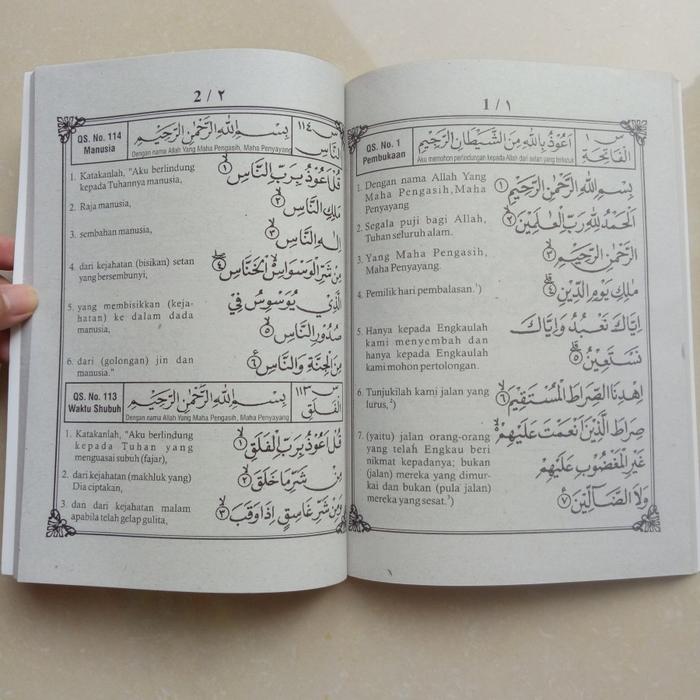 1 / ١
QS. No. 1
Pembukaan
اَعُوْذُ بِاللهِ مِنَ الشَّيْطَانِ الرَّجِيْمِ
Aku memohon perlindungan kepada Allah dari setan yang terkutuk
س ١
الْفَاتِحَة
1. Dengan nama Allah Yang
Maha Pengasih, Maha
Penyayang
بِسْمِ اللهِ الرَّحْمٰنِ الرَّحِيْمِ ١
2. Segala puji bagi Allah,
Tuhan seluruh alam.
اَلْحَمْدُ لِلهِ رَبِّ الْعٰلَمِيْنَ ٢
3. Yang Maha Pengasih,
Maha Penyayang.
الرَّحْمٰنِ الرَّحِيْمِ ٣
4. Pemilik hari pembalasan.¹)
مٰلِكِ يَوْمِ الدِّيْنِ ٤
5. Hanya kepada Engkaulah
kami menyembah dan
hanya kepada Engkaulah
kami mohon pertolongan.
اِيَّاكَ نَعْبُدُ وَاِيَّاكَ
نَسْتَعِيْنُ ٥
6. Tunjukilah kami jalan yang
lurus,²)
اِهْدِنَا الصِّرَاطَ الْمُسْتَقِيْمَ ٦
7. (yaitu) jalan orang-orang
yang telah Engkau beri
nikmat kepadanya; bukan
(jalan) mereka yang dimur-
kai dan bukan (pula jalan)
mereka yang sesat.³)
صِرَاطَ الَّذِيْنَ اَنْعَمْتَ عَلَيْهِمْ
غَيْرِ الْمَغْضُوْبِ عَلَيْهِمْ
وَلَا الضَّآلِّيْنَ ٧
2 / ٢
QS. No. 114
Manusia
بِسْمِ اللهِ الرَّحْمٰنِ الرَّحِيْمِ
Dengan nama Allah Yang Maha Pengasih, Maha Penyayang
س ١١٤
النَّاس
1. Katakanlah, "Aku berlindung
kepada Tuhannya manusia,
قُلْ اَعُوْذُ بِرَبِّ النَّاسِ ١
2. Raja manusia,
مَلِكِ النَّاسِ ٢
3. sembahan manusia,
اِلٰهِ النَّاسِ ٣
4. dari kejahatan (bisikan) setan
yang bersembunyi,
مِنْ شَرِّ الْوَسْوَاسِ الْخَنَّاسِ ٤
5. yang membisikkan (keja-
hatan) ke dalam dada
manusia,
الَّذِيْ يُوَسْوِسُ فِيْ
صُدُوْرِ النَّاسِ ٥
6. dari (golongan) jin dan
manusia."
مِنَ الْجِنَّةِ وَالنَّاسِ ٦
QS. No. 113
Waktu Shubuh
بِسْمِ اللهِ الرَّحْمٰنِ الرَّحِيْمِ
Dengan nama Allah Yang Maha Pengasih, Maha Penyayang
س ١١٣
الْفَلَق
1. Katakanlah, "Aku berlindung
kepada Tuhan yang
menguasai subuh (fajar),
قُلْ اَعُوْذُ بِرَبِّ الْفَلَقِ ١
2. dari kejahatan (makhluk yang)
Dia ciptakan,
مِنْ شَرِّ مَا خَلَقَ ٢
3. dan dari kejahatan malam
apabila telah gelap gulita,
وَمِنْ شَرِّ غَاسِقٍ اِذَا وَقَبَ ٣